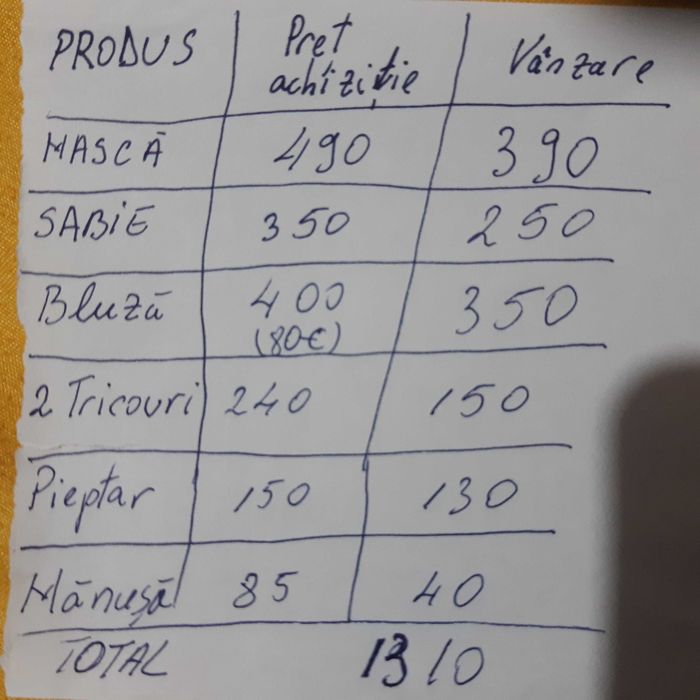 PRODUS Preț achiziție Vânzare
MASCĂ 490 390
SABIE 350 250
Bluză 400 (80€) 350
2 Tricouri 240 150
Pieptar 150 130
Mănușă 85 40
TOTAL 1310